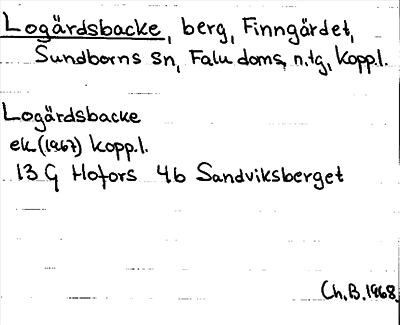 Logärdsbacke, berg, Finngärdet,
Sundborns sn, Falu doms. n.tg, Kopp.l.
Logärdsbacke
ek (1967) Kopp.l.
13 G Hofors 4b Sandviksberget
Ch.B.1968.